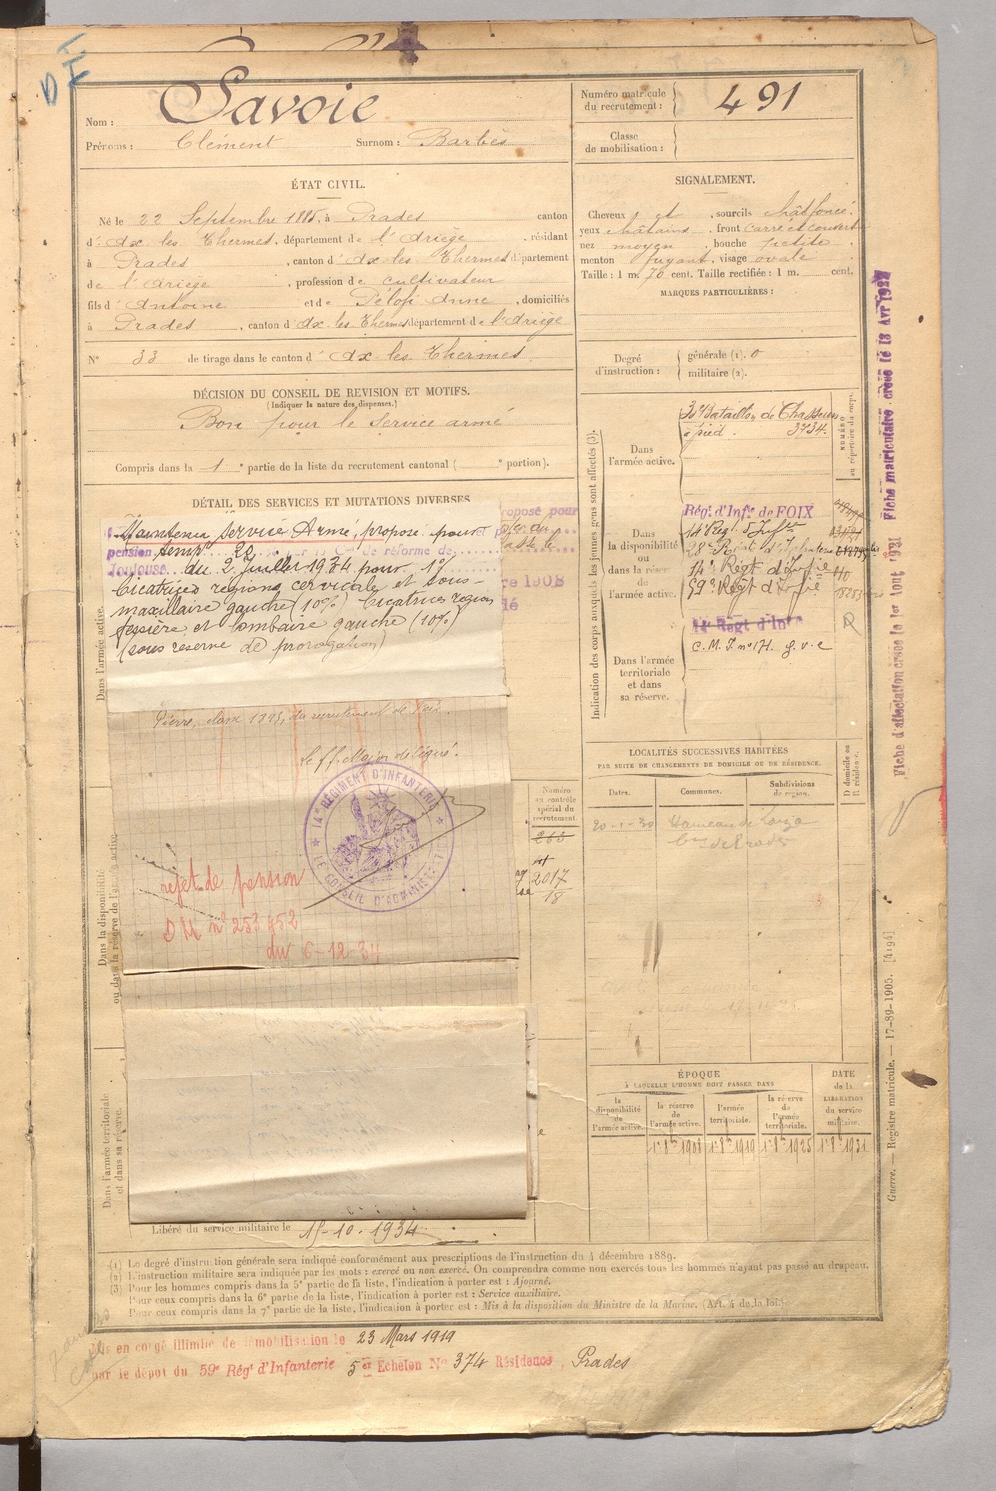 Nom : Savoie
Prénoms : Clément Surnom : Barbès
Numéro matricule
du recrutement : 491
Classe
de mobilisation :
ÉTAT CIVIL.
Né le 22 Septembre 1885, à Prades canton
d' Ax les Thermes, département de l'Ariège, résidant
à Prades, canton d' Ax les Thermes département
de l'Ariège, profession de cultivateur
fils d' Antoine et de Pélofi Anne, domiciliés
à Prades, canton d' Ax les Thermes département de l'Ariège
N° 33 de tirage dans le canton d' Ax les Thermes
SIGNALEMENT.
Cheveux et sourcils chât foncé.
yeux châtains, front carré et couvert
nez moyen, bouche petite
menton fuyant, visage ovale
Taille : 1 m. 70 cent. Taille rectifiée : 1 m. cent.
MARQUES PARTICULIÈRES :
Degré
d'instruction :
générale (1). 0
militaire (2).
DÉCISION DU CONSEIL DE REVISION ET MOTIFS.
(Indiquer la nature des dispenses.)
Bon pour le service armé
Compris dans la 1e partie de la liste du recrutement cantonal ( e portion).
DÉTAIL DES SERVICES ET MUTATIONS DIVERSES
Maintenu service Armé, proposé pour
pension temp. 20 par la Con de réforme de
Toulouse du 2 Juillet 1934 pour 1°/
Cicatrices régions cervicale et sous-
maxillaire gauche (10%) Cicatrices région
fessière et lombaire gauche (10%)
(sous réserve de prorogation)
Pierre, classe 1895, du recrutement de Foix.
Le ff. Major délégué.
14e RÉGIMENT D'INFANTERIE
LE CONSEIL D'ADMINISTRATION
rejet de pension
DM n° 253 452
du 6-12-34
Dans l'armée active.
Dans la disponibilité
ou dans la réserve de l'armée active.
Dans l'armée territoriale
et dans sa réserve.
Numéro
au contrôle
spécial du
recrutement.
263
2017
18
Libéré du service militaire le 15-10-1934
Indication des corps auxquels les jeunes gens sont affectés (3).
NUMÉRO
au répertoire du corps.
Dans
l'armée active.
Bataillon de Chasseurs
à pied. 3734.
Dans
la disponibilité
ou
dans la réserve
de
l'armée active.
Régt d'Infie de FOIX
14e Régt d'Infie
28e Régt d'Infanterie
14e Régt d'Infie
59e Régt d'Infie
14e Régt d'Infie
C.M.I. n° 171. g.v.c
Dans l'armée
territoriale
et dans
sa réserve.
LOCALITÉS SUCCESSIVES HABITÉES
PAR SUITE DE CHANGEMENTS DE DOMICILE OU DE RÉSIDENCE.
Dates. Communes. Subdivisions
de région.
D domicile ou
R résidence.
20-1-30 Hameau de
Cne de Prades
ÉPOQUE
À LAQUELLE L'HOMME DOIT PASSER DANS
la
disponibilité
de
l'armée active.
la réserve
de
l'armée active.
l'armée
territoriale.
la réserve
de
l'armée
territoriale.
DATE
de la
LIBÉRATION
du service
militaire.
1er 8bre 1908 1er 8bre 1919 1er 8bre 1925 1er 8bre 1931
(1) Le degré d'instruction générale sera indiqué conformément aux prescriptions de l'instruction du 4 décembre 1889.
(2) L'instruction militaire sera indiquée par les mots : exercé ou non exercé. On comprendra comme non exercés tous les hommes n'ayant pas passé au drapeau.
(3) Pour les hommes compris dans la 5e partie de la liste, l'indication à porter est : Ajourné.
Pour ceux compris dans la 6e partie de la liste, l'indication à porter est : Service auxiliaire.
Pour ceux compris dans la 7e partie de la liste, l'indication à porter est : Mis à la disposition du Ministre de la Marine. (Art. 4 de la loi.)
Mis en congé illimité de démobilisation le 23 Mars 1919
par le dépôt du 59e Régt d'Infanterie 5er Echelon No 374 Résidence, Prades
Fiche matriculaire créée le 13 Avr 1927
Fiche d'affectation créée le 1er Aout 1931
Guerre. — Registre matricule. — 17-89-1905. [4194]